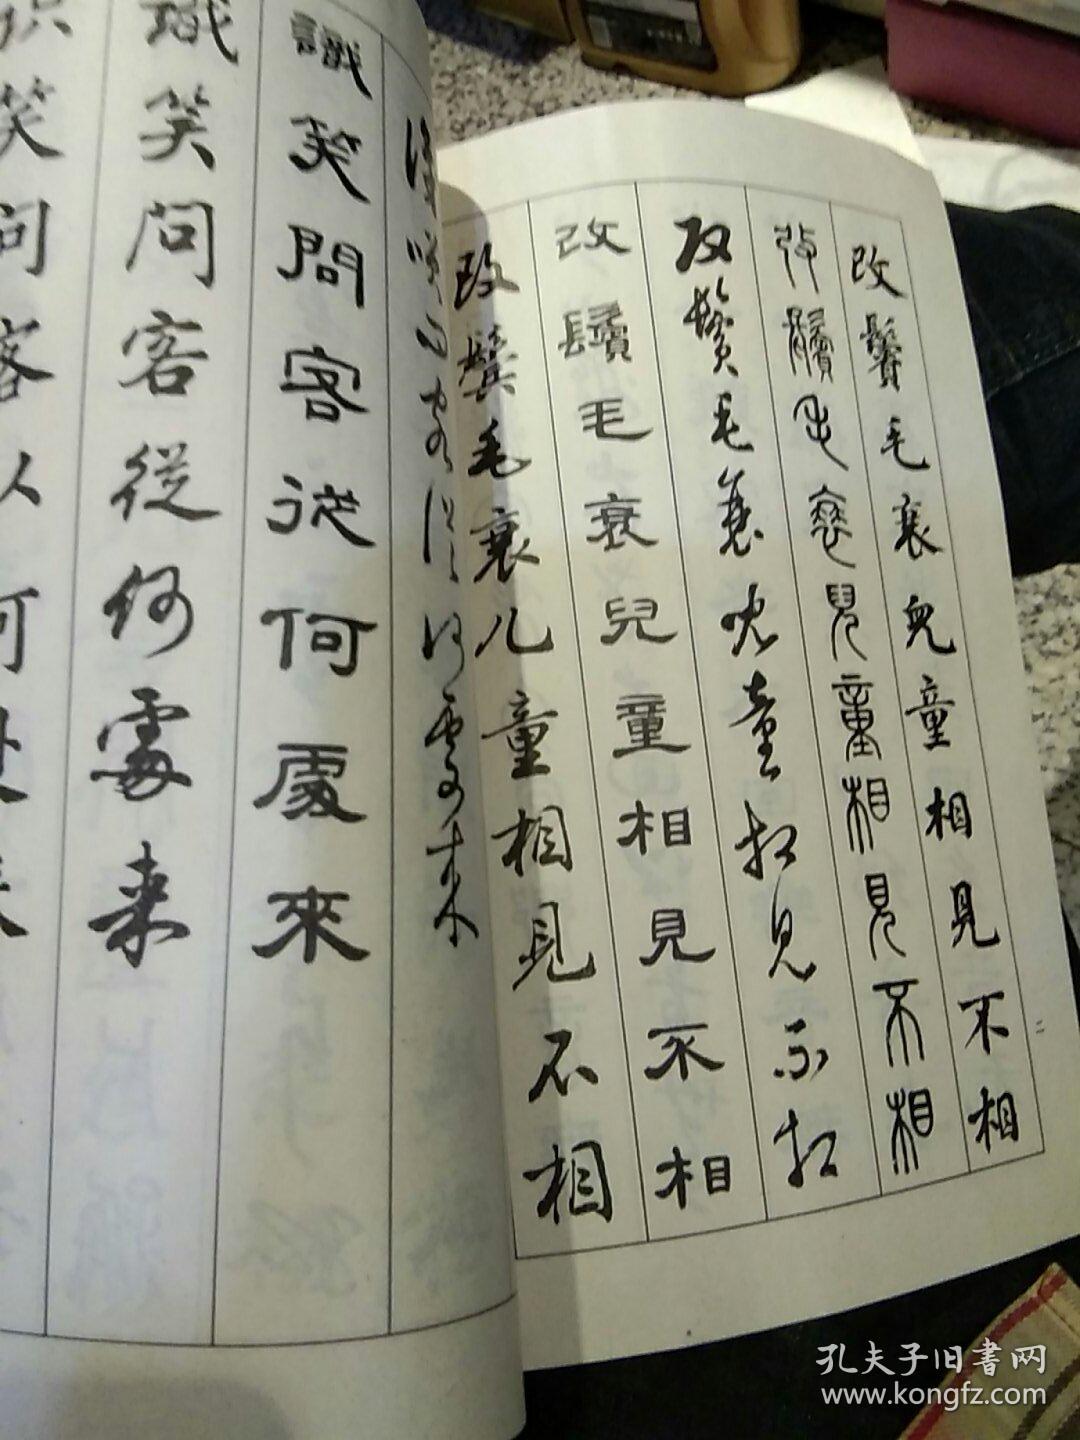 改鬢毛衰兒童相見不相
改鬢毛衰兒童相見不相
改鬢毛衰兒童相見不相
改鬢毛衰兒童相見不相
改鬓毛衰儿童相見不相
二
識笑问客從何處来
識笑問客從何處來
識笑问客從何處来
笑问客从何
孔夫子旧書网
www.kongfz.com